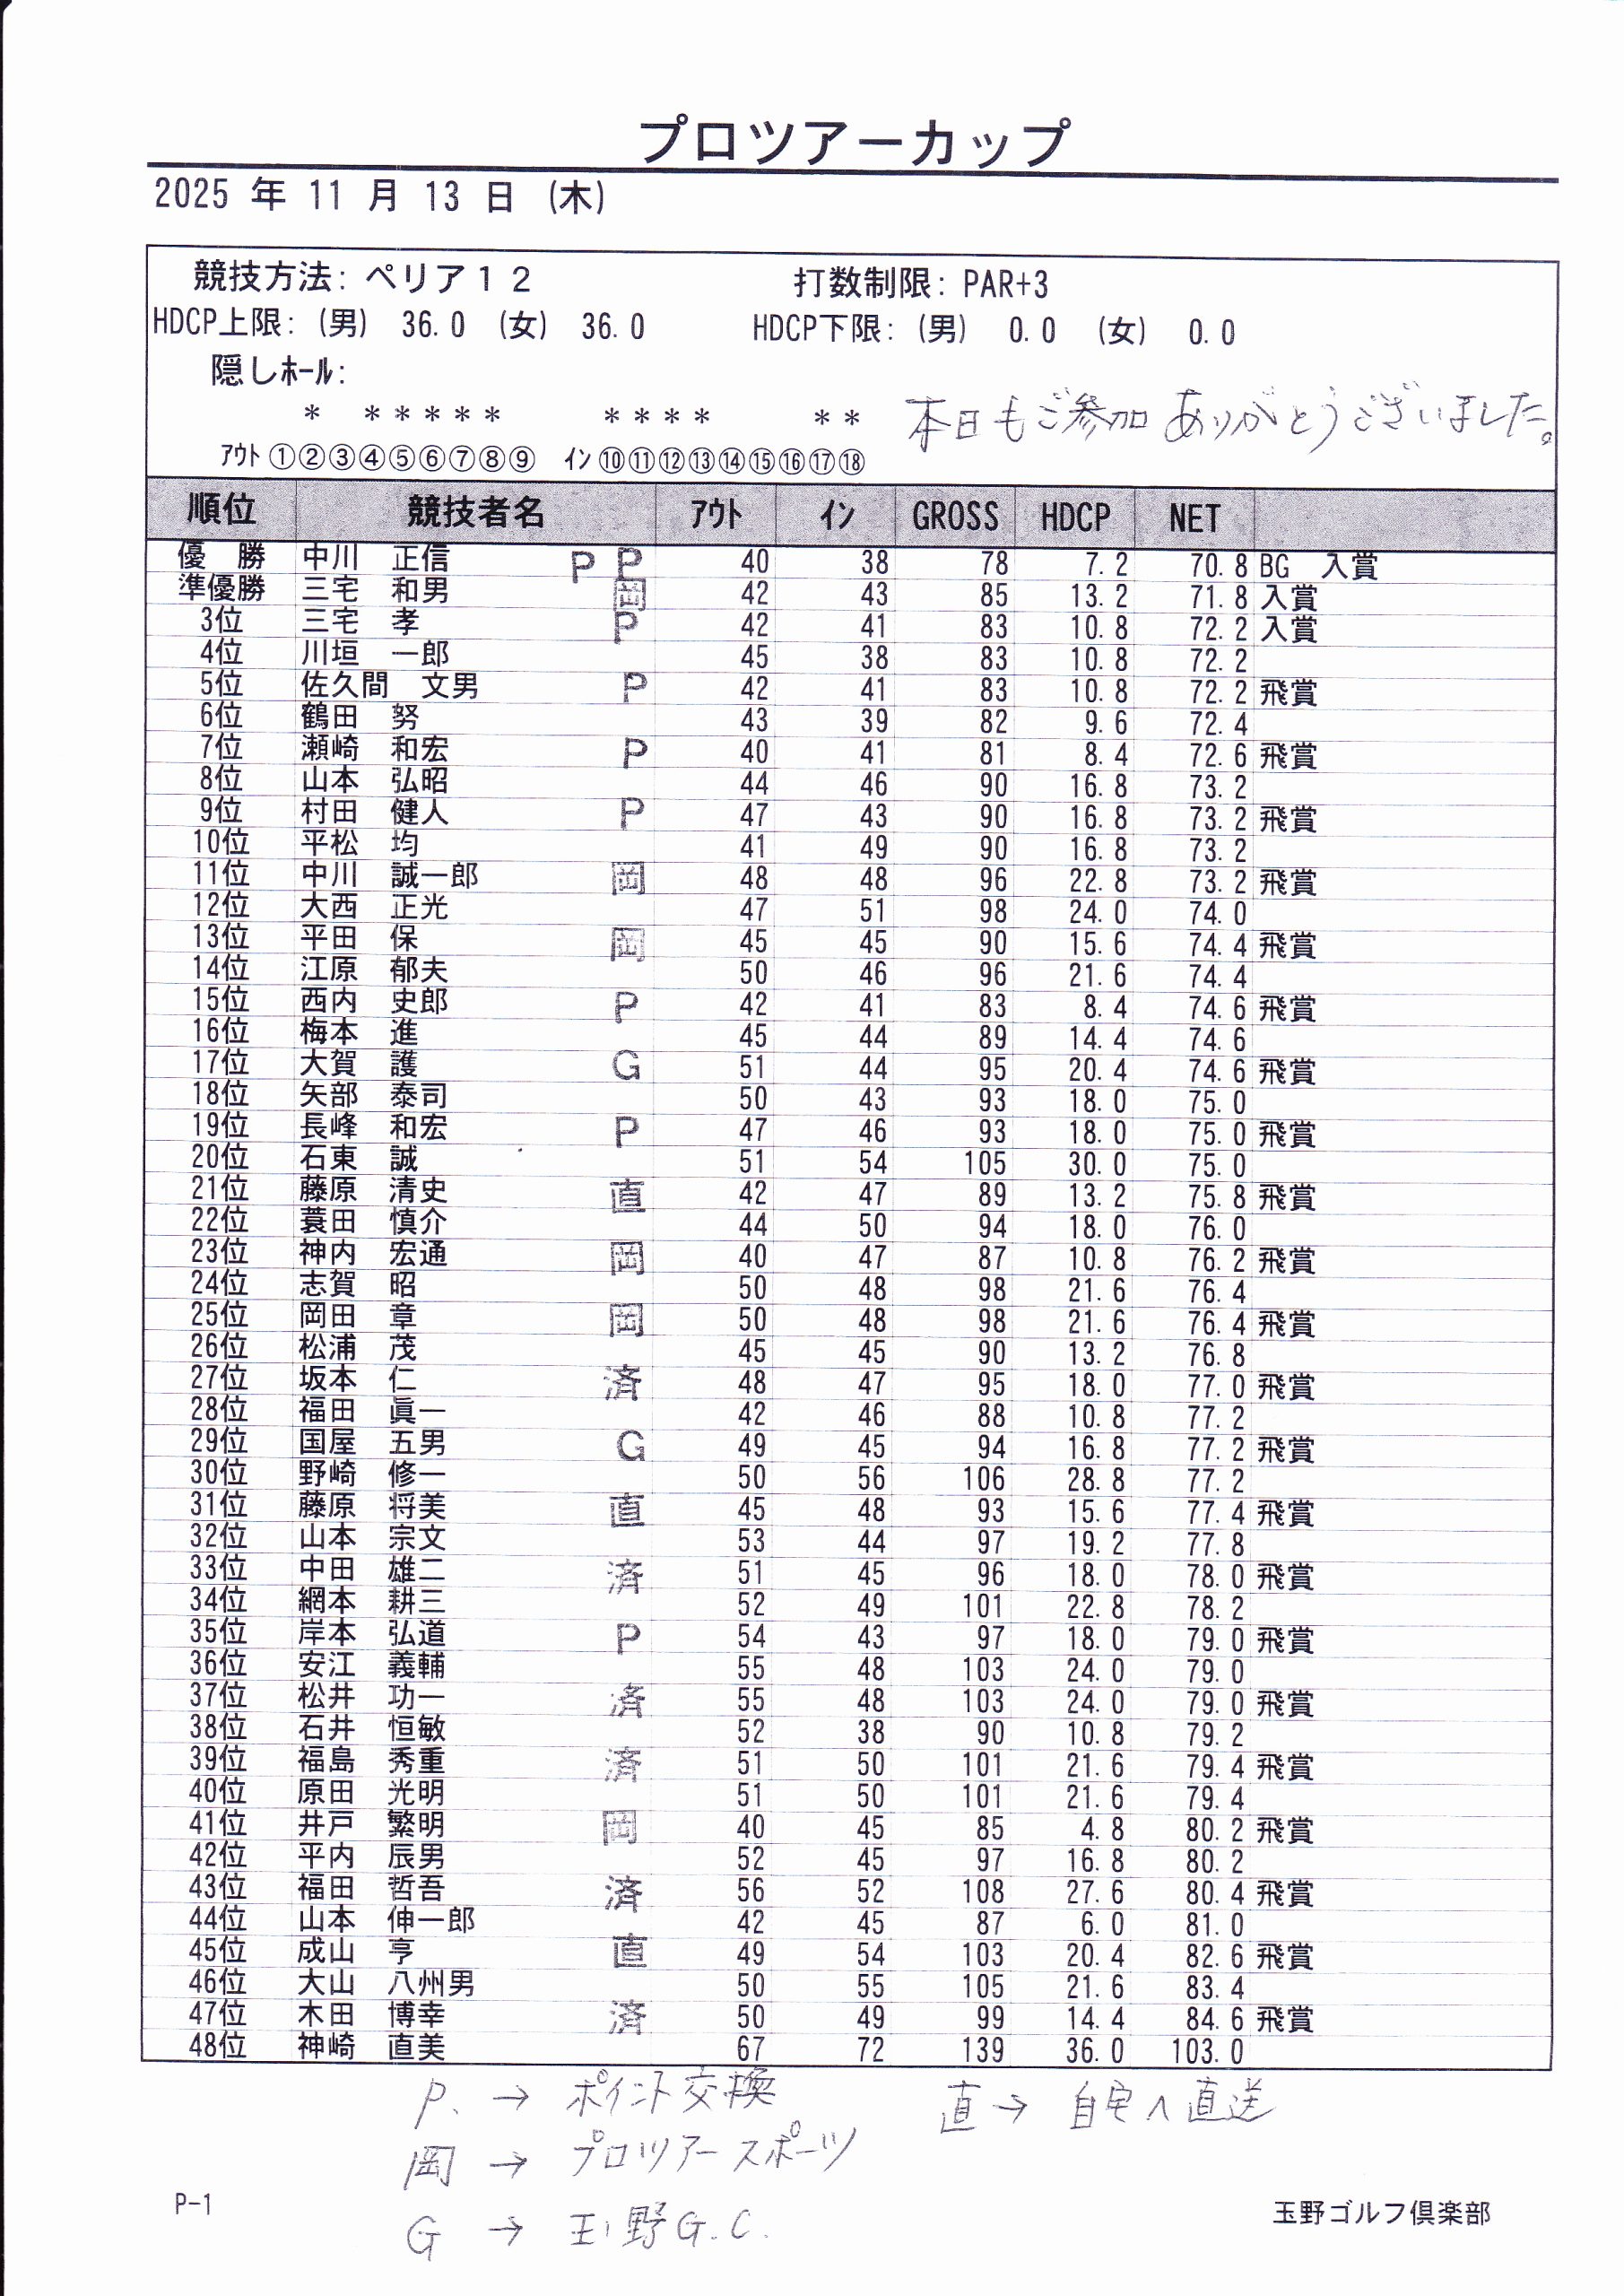 プロツアーカップ
2025 年 11 月 13 日 (木)
競技方法: ペリア12 打数制限: PAR+3
HDCP上限: (男) 36.0 (女) 36.0 HDCP下限: (男) 0.0 (女) 0.0
隠しホール:
* * * * * * * * * * * * 本日もご参加ありがとうございました。
アウト ①②③④⑤⑥⑦⑧⑨ イン ⑩⑪⑫⑬⑭⑮⑯⑰⑱
順位 競技者名 アウト イン GROSS HDCP NET
優 勝 中川 正信 P P 40 38 78 7.2 70.8 BG 入賞
準優勝 三宅 和男 岡 42 43 85 13.2 71.8 入賞
3位 三宅 孝 P 42 41 83 10.8 72.2 入賞
4位 川垣 一郎 45 38 83 10.8 72.2
5位 佐久間 文男 P 42 41 83 10.8 72.2 飛賞
6位 鶴田 努 43 39 82 9.6 72.4
7位 瀬崎 和宏 P 40 41 81 8.4 72.6 飛賞
8位 山本 弘昭 44 46 90 16.8 73.2
9位 村田 健人 P 47 43 90 16.8 73.2 飛賞
10位 平松 均 41 49 90 16.8 73.2
11位 中川 誠一郎 岡 48 48 96 22.8 73.2 飛賞
12位 大西 正光 47 51 98 24.0 74.0
13位 平田 保 岡 45 45 90 15.6 74.4 飛賞
14位 江原 郁夫 50 46 96 21.6 74.4
15位 西内 史郎 P 42 41 83 8.4 74.6 飛賞
16位 梅本 進 45 44 89 14.4 74.6
17位 大賀 護 G 51 44 95 20.4 74.6 飛賞
18位 矢部 泰司 50 43 93 18.0 75.0
19位 長峰 和宏 P 47 46 93 18.0 75.0 飛賞
20位 石東 誠 51 54 105 30.0 75.0
21位 藤原 清史 直 42 47 89 13.2 75.8 飛賞
22位 蓑田 慎介 44 50 94 18.0 76.0
23位 神内 宏通 岡 40 47 87 10.8 76.2 飛賞
24位 志賀 昭 50 48 98 21.6 76.4
25位 岡田 章 岡 50 48 98 21.6 76.4 飛賞
26位 松浦 茂 45 45 90 13.2 76.8
27位 坂本 仁 済 48 47 95 18.0 77.0 飛賞
28位 福田 眞一 42 46 88 10.8 77.2
29位 国屋 五男 G 49 45 94 16.8 77.2 飛賞
30位 野崎 修一 50 56 106 28.8 77.2
31位 藤原 将美 直 45 48 93 15.6 77.4 飛賞
32位 山本 宗文 53 44 97 19.2 77.8
33位 中田 雄二 済 51 45 96 18.0 78.0 飛賞
34位 網本 耕三 52 49 101 22.8 78.2
35位 岸本 弘道 P 54 43 97 18.0 79.0 飛賞
36位 安江 義輔 55 48 103 24.0 79.0
37位 松井 功一 済 55 48 103 24.0 79.0 飛賞
38位 石井 恒敏 52 38 90 10.8 79.2
39位 福島 秀重 済 51 50 101 21.6 79.4 飛賞
40位 原田 光明 51 50 101 21.6 79.4
41位 井戸 繁明 岡 40 45 85 4.8 80.2 飛賞
42位 平内 辰男 52 45 97 16.8 80.2
43位 福田 哲吾 済 56 52 108 27.6 80.4 飛賞
44位 山本 伸一郎 42 45 87 6.0 81.0
45位 成山 亨 直 49 54 103 20.4 82.6 飛賞
46位 大山 八州男 50 55 105 21.6 83.4
47位 木田 博幸 済 50 49 99 14.4 84.6 飛賞
48位 神崎 直美 67 72 139 36.0 103.0
P. → ポイント交換 直 → 自宅へ直送
岡 → プロツアースポーツ
G → 玉野G.C.
P-1 玉野ゴルフ倶楽部